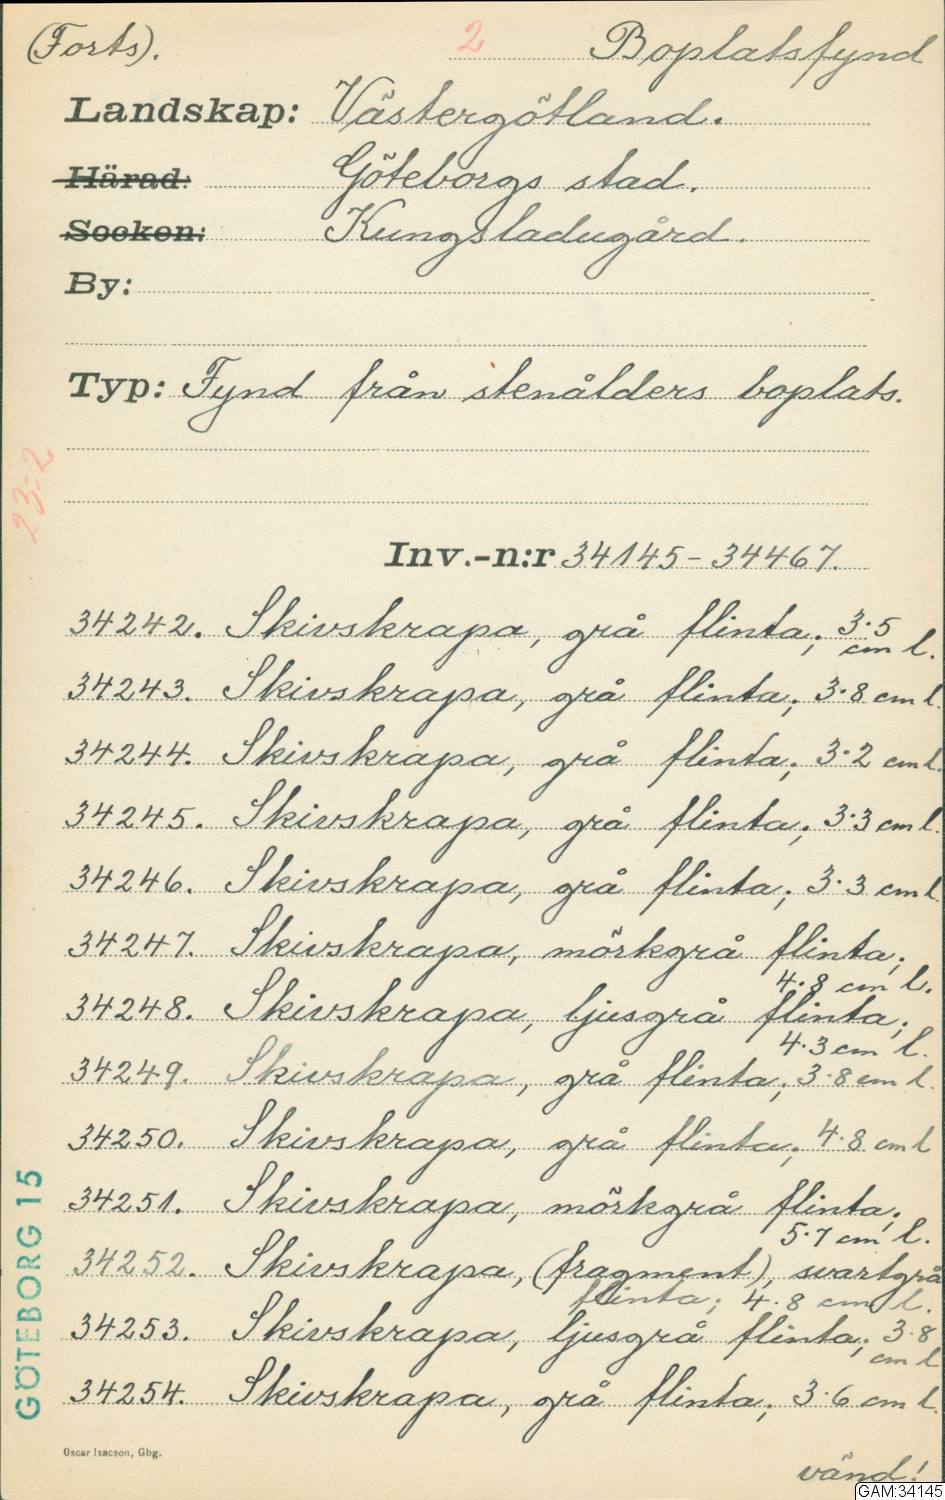 (Forts). 2 Boplatsfynd
Landskap: Västergötland.
Härad: Göteborgs stad.
Socken: Kungsladugård.
By:
Typ: Fynd från stenålders boplats.
23:2
Inv.-n:r 34145-34467.
34242. Skivskrapa, grå flinta; 3.5
cm l.
34243. Skivskrapa, grå flinta; 3.8 cm l.
34244. Skivskrapa, grå flinta; 3.2 cm l.
34245. Skivskrapa, grå flinta; 3.3 cm l.
34246. Skivskrapa, grå flinta; 3.3 cm l
34247. Skivskrapa, mörkgrå flinta;
4.8 cm l.
34248. Skivskrapa, ljusgrå flinta;
4.3 cm l.
34249. Skivskrapa, grå flinta; 3.8 cm l.
34250. Skivskrapa, grå flinta; 4.8 cm l
34251. Skivskrapa, mörkgrå flinta;
5.7 cm l.
34252. Skivskrapa, (fragment), svartgrå
flinta; 4.8 cm l.
34253. Skivskrapa, ljusgrå flinta; 3.8
cm l
34254. Skivskrapa, grå flinta; 3.6 cm l.
GÖTEBORG 15
Oscar Isacson, Gbg.
vänd!
GAM:34145